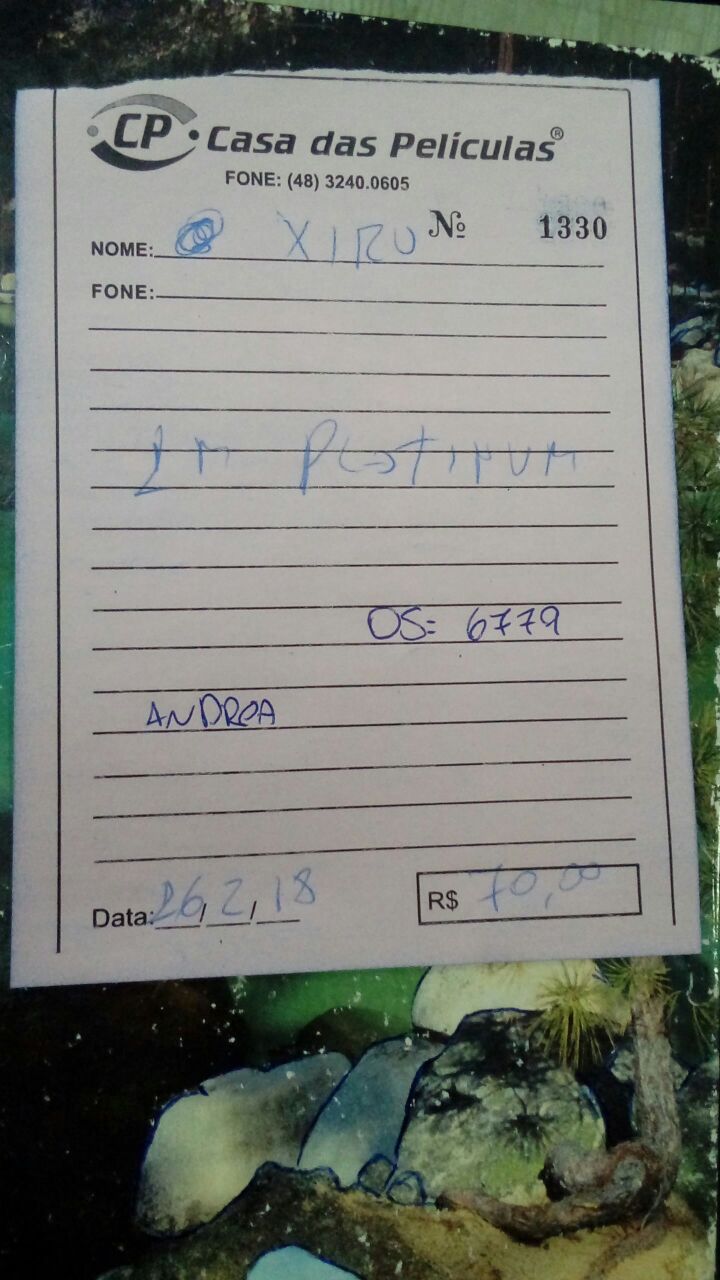 CP Casa das Películas®
FONE: (48) 3240.0605
Nº 1330
NOME: XIRU
FONE:
1 M PLATINUM
OS= 6779
ANDREA
Data: 26/2/18
R$ 70,00